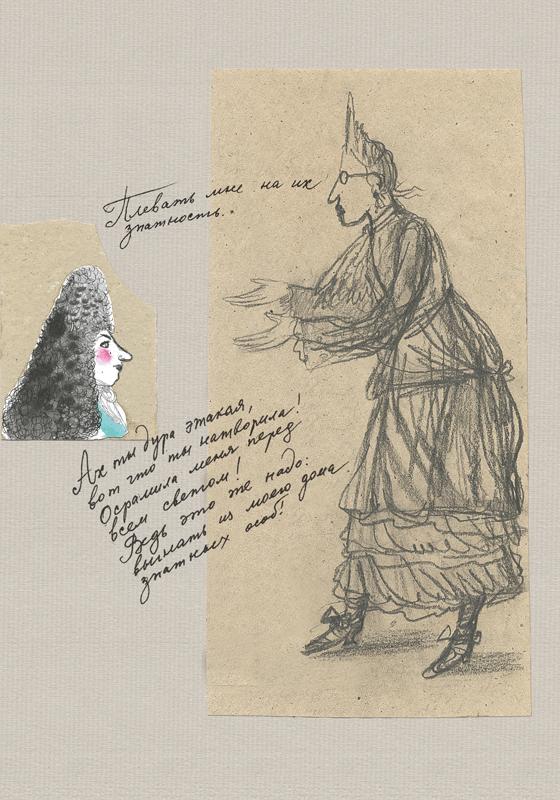 Плевать мне на их
знатность.
Ах ты дура этакая,
вот что ты натворила!
Осрамила меня перед
всем светом!
Ведь это же надо:
выгнать из моего дома
знатных особ!